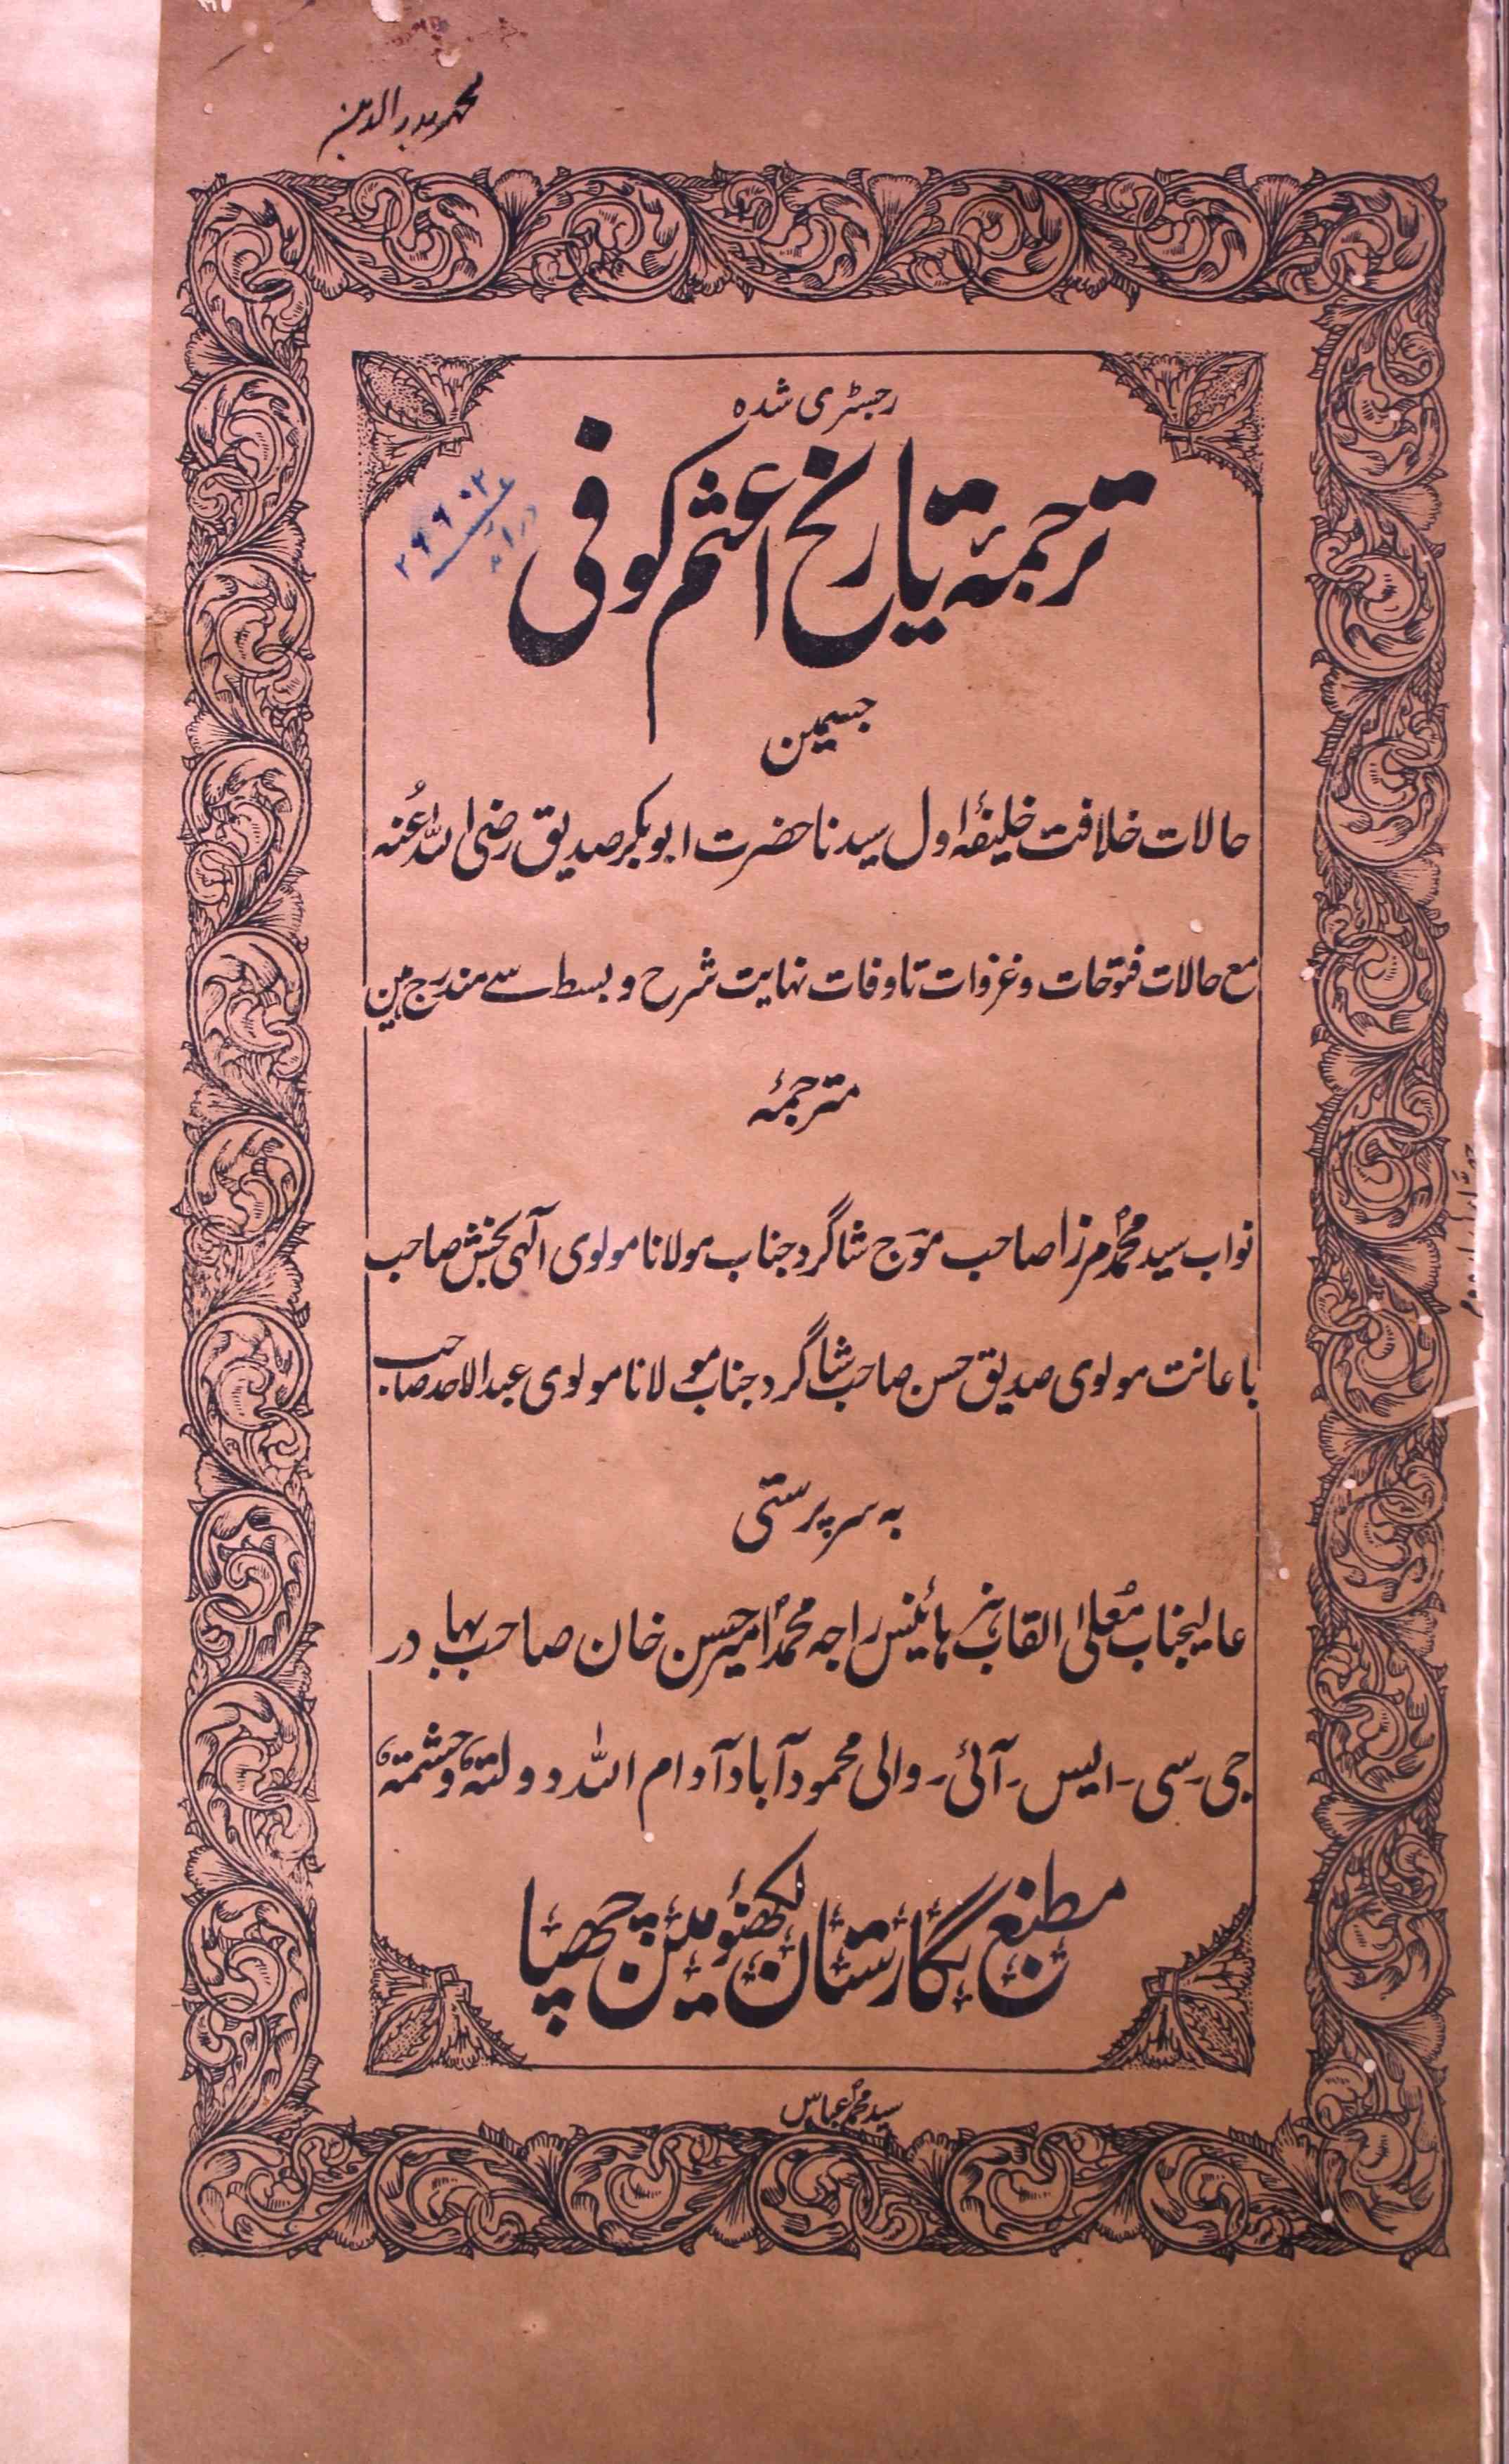 محمد بدر الدین
رجسٹری شدہ
ترجمۂ تاریخ اعثم کوفی
جسمین
حالات خلافت خلیفۂ اول سیدنا حضرت ابوبکر صدیق رضی اللہ عنہ
مع حالات فتوحات و غزوات تا وفات نہایت شرح و بسط سے مندرج ہین
مترجمۂ
نواب سید محمد مرزا صاحب موج شاگرد جناب مولانا مولوی آلہی بخش صاحب
باعانت مولوی صدیق حسن صاحب شاگرد جناب مولانا مولوی عبدالاحد صاحب
بہ سرپرستی
عالیجناب معلی القاب ہز ہائینس راجہ محمد امیر حسن خان صاحب بہادر
جی - سی - ایس - آئی - والی محمود آباد آدام اللہ دولتہ و حشمتہ
مطبع نگارستان لکھنؤ مین چھپا
سید محمد عباس